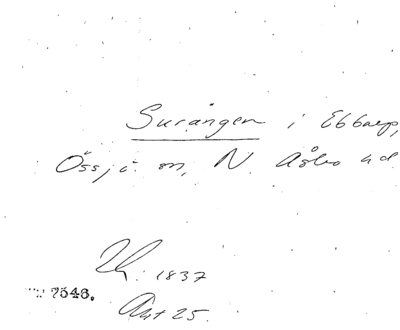 Surängen i Ebbarp,
Össjö sn, N. Åsbo hd.
1837
7546.
Akt 25.